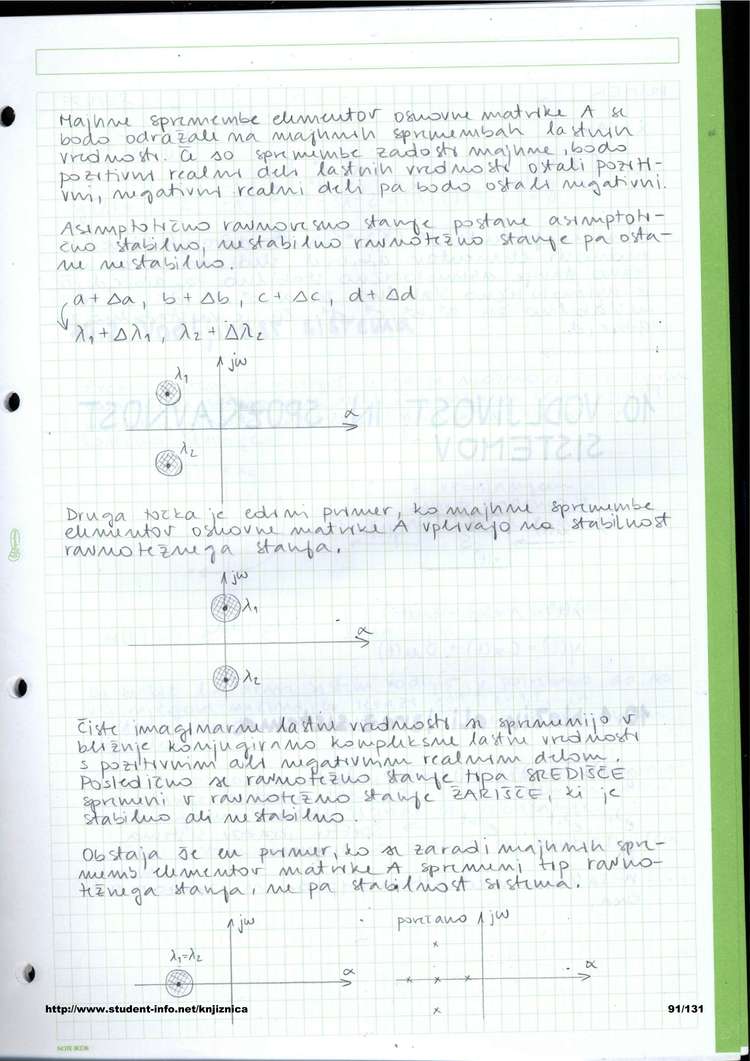 Majhne spremembe elementov osnovne matrike A se
bodo odražale na majhnih spremembah lastnih
vrednosti. Če so spremembe zadosti majhne, bodo
pozitivni realni deli lastnih vrednosti ostali poziti-
vni, negativni realni deli pa bodo ostali negativni.
Asimptotično ravnovesno stanje postane asimptoti-
čno stabilno, nestabilno ravnotežno stanje pa osta-
ne nestabilno.
a + Δa, b + Δb, c + Δc, d + Δd
λ₁ + Δλ₁, λ₂ + Δλ₂
jω
λ₁
α
λ₂
10 VODLJIVOST IN SPOZNAVNOST
SISTEMOV
Druga točka je edini primer, ko majhne spremembe
elementov osnovne matrike A vplivajo na stabilnost
ravnotežnega stanja.
jω
λ₁
α
λ₂
Čiste imaginarne lastne vrednosti se spremenijo v
bližnje konjugirano kompleksne lastne vrednosti
s pozitivnim ali negativnim realnim delom.
Posledično se ravnotežno stanje tipa SREDIŠČE
spremeni v ravnotežno stanje ŽARIŠČE, ki je
stabilno ali nestabilno.
Obstaja še en primer, ko se zaradi majhnih spre-
memb elementov matrike A spremeni tip ravno-
težnega stanja, ne pa stabilnost sistema.
jω
povezano jω
λ₁=λ₂
α
α
http://www.student-info.net/knjiznica 91/131